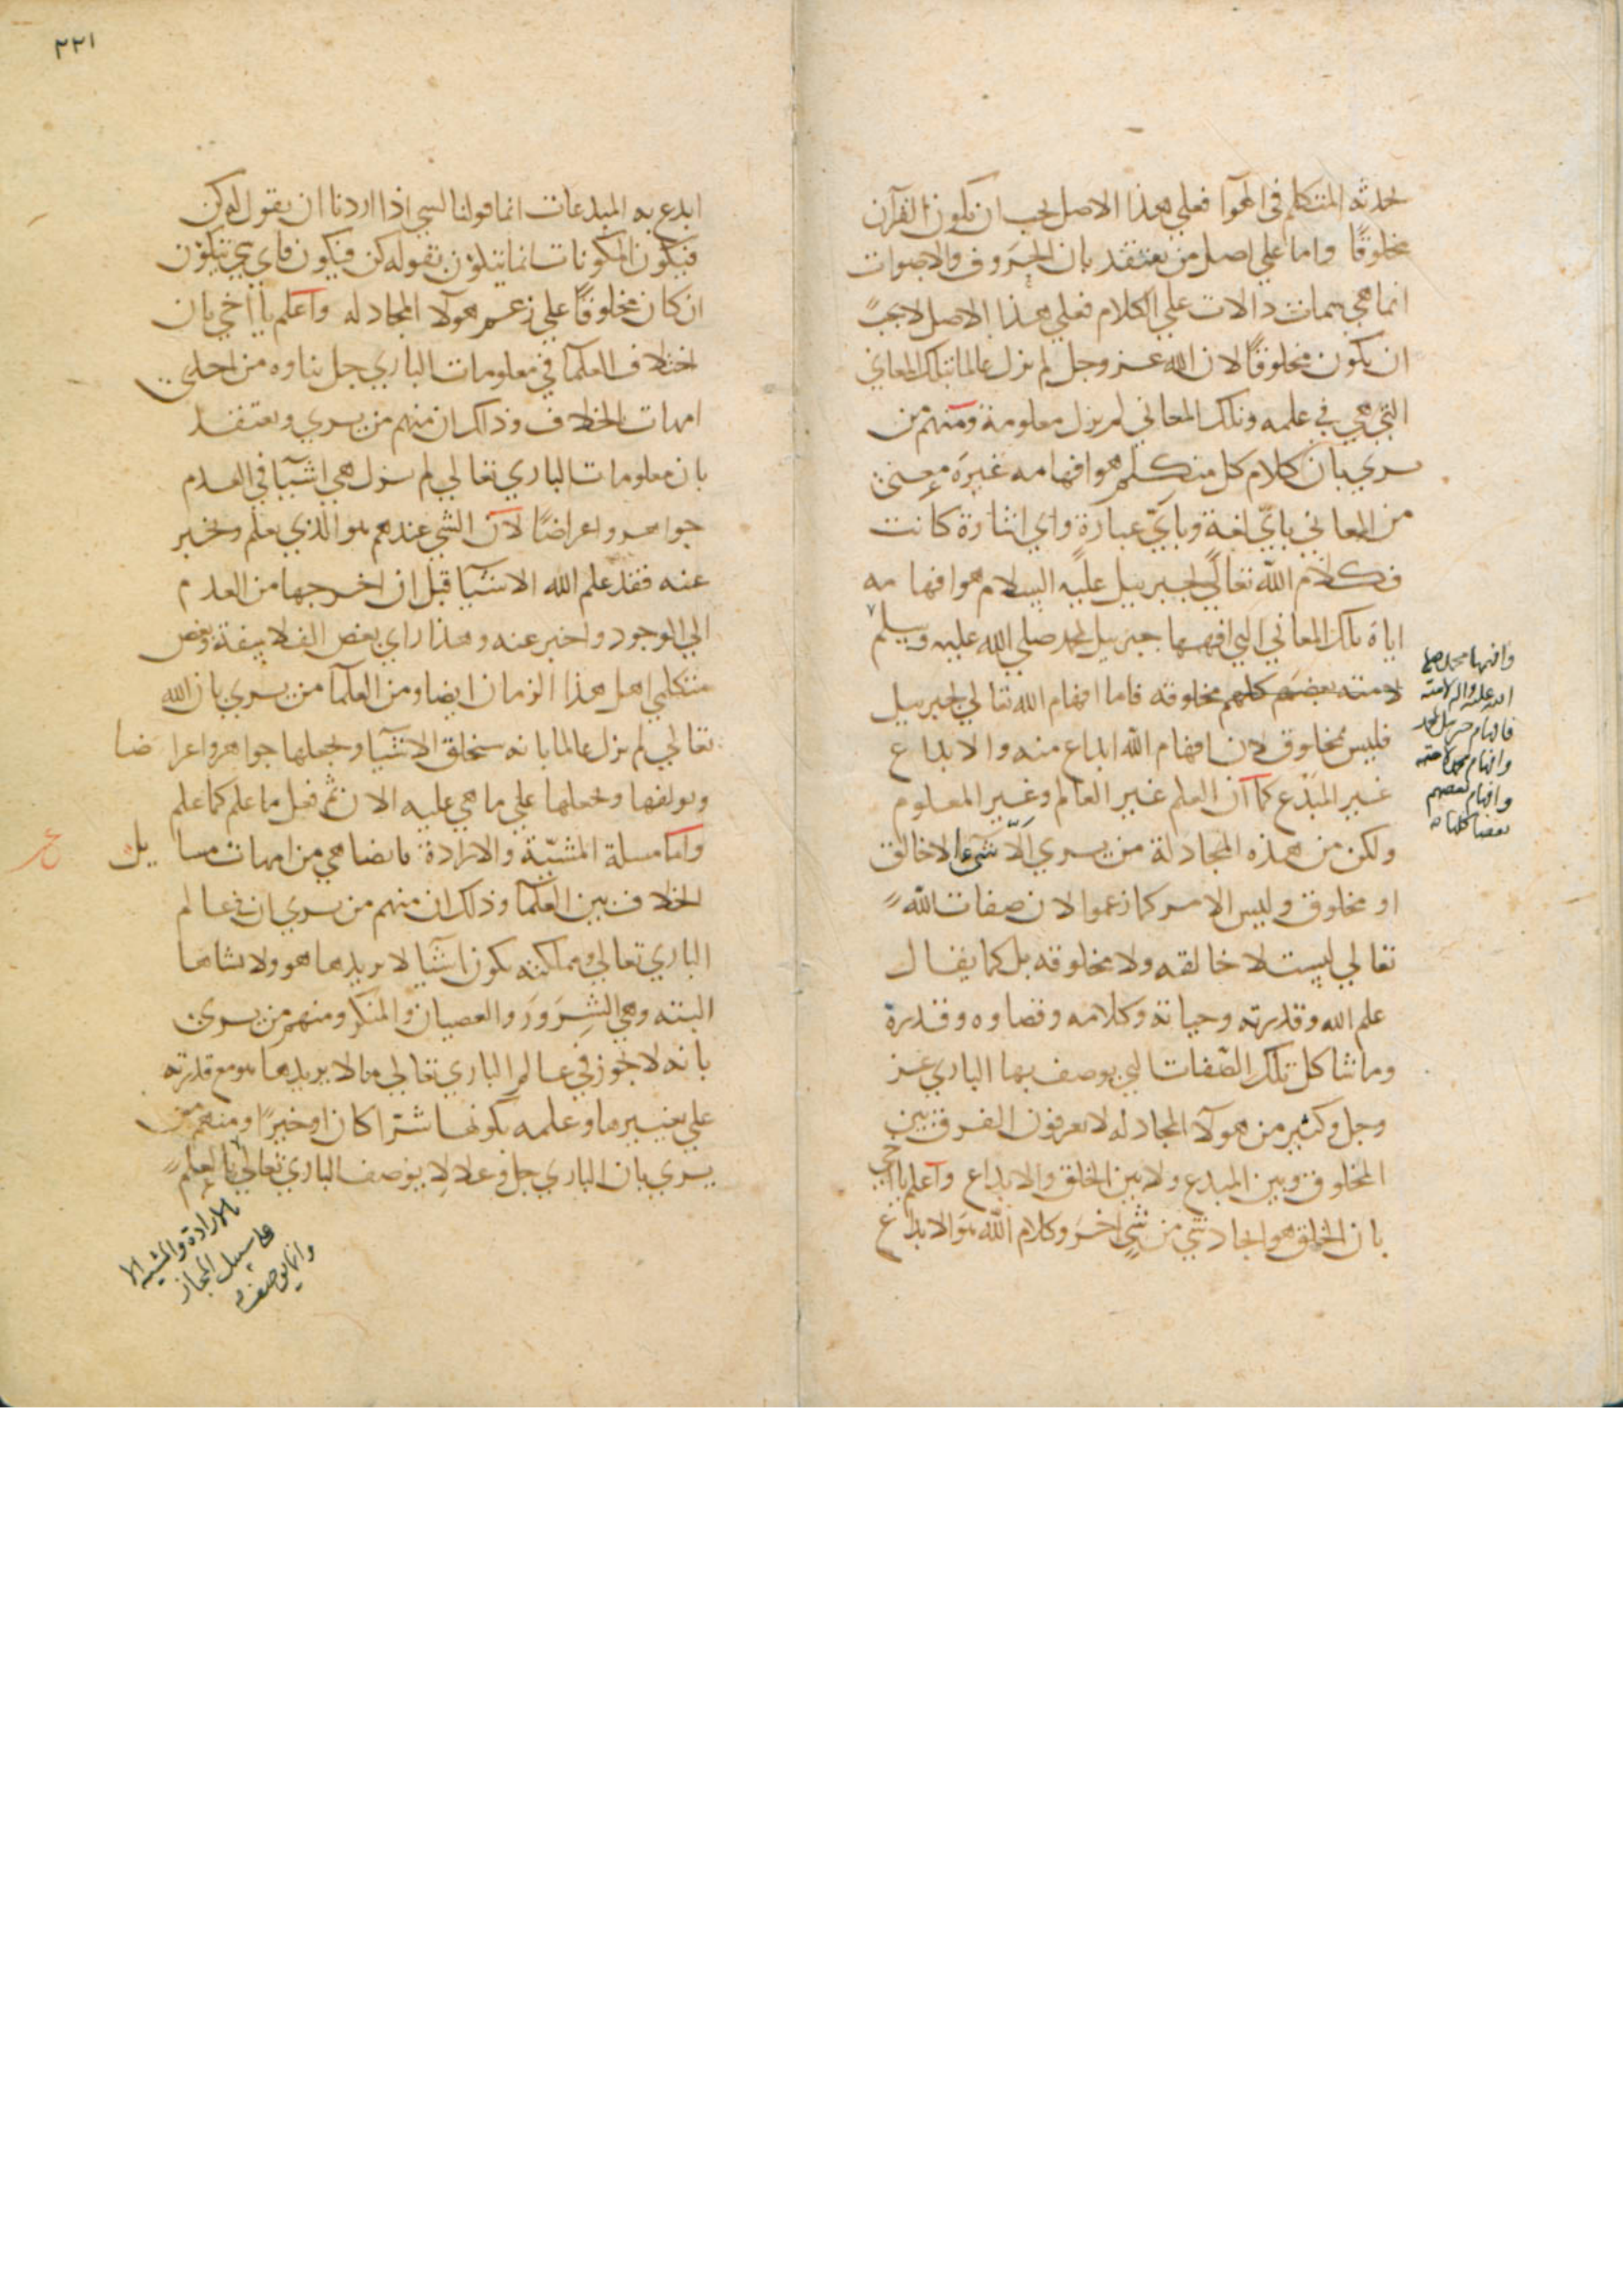 يحدثه المتكلم في الهوآ فعلي هذا الاصل يجب ان يكون القرآن
مخلوقًا واما علي اصل من يعتقد بان الحروف والاصوات
انما هي سمات دالات علي الكلام فعلي هذا الاصل لا يجب
ان يكون مخلوقًا لان الله عز وجل لم يزل عالما بتلك المعاني
التي هي في علمه وتلك المعاني لم يزل معلومة ومنهم من
يري بان كلام كل متكلم هو افهامه غيره معني
من المعاني باي لغة وباي عبارة واي اشارة كانت
فكلام الله تعالي لجبرييل عليه السلام هو افهامه
اياه تلك المعاني التي افهمها جبرييل لمحمد صلي الله عليه وسلم
لامته بعضهم كلهم مخلوقه فاما افهام الله تعالي لجبرييل
فليس مخلوق لان افهام الله ابداع منه والابداع
غير المبدع كما ان العلم غير العالم وغير المعلوم
ولكن من هذه المجادلة من يري الا شي الا خالق
او مخلوق وليس الامر كما زعموا لان صفات الله
تعالي ليست لا خالقه ولا مخلوقه بل كما يقال
علم الله وقدرته وحياته وكلامه وقضاوه وقدره
وما شاكل تلك الصفات التي يوصف بها الباري عز
وجل وكثير من هولآ المجادله لا يعرفون الفرق بين
المخلوق وبين المبدع ولا بين الخلق والابداع واعلم يا اخي
بان الخلق هو ايجاد شي من شي اخر وكلام الله هو الابداع
وافهمها محمد صلي
الله عليه واله لامته
فافهام جبريل لمحمد
وافهام محمد لامته
وافهام بعضهم
بعضا كلها
٢٢١
ابدع به المبدعات انما قولنا لشي اذا اردنا ان يقول له كن
فيكون المكونات انما يتكون بقوله كن فيكون فاي شي يتكون
ان كان مخلوقًا علي زعم هولآ المجادله واعلم يا اخي بان
اختلاف العلمآ في معلومات الباري جل ثناوه من احدي
امهات الخلاف وذلك ان منهم من يري ويعتقد
بان معلومات الباري تعالي لم يزل هي اشيآ في العدم
جواهر واعراضًا لان الشي عندهم هو الذي يعلم ويخبر
عنه فقد علم الله الاشيآ قبل ان اخرجها من العدم
الي الوجود واخبر عنه وهذا راي بعض الفلاسفة وبعض
متكلمي اهل هذا الزمان ايضا ومن العلمآ من يري بان الله
تعالي لم يزل عالما بانه سيخلق الاشيآ ويجعلها جواهر واعراضا
ويولفها ويجعلها علي ما هي عليه الان ثم فعل ما علم كما علم
واما مسلة المشيّة والارادة فايضا هي من امهات مسايل
الخلاف بين العلمآ وذلك ان منهم من يري ان في عالم
الباري تعالي ومملكته يكون اشيآ لا يريدها هو ولا يشاها
البته وهي الشرور والعصيان والمنكر ومنهم من يري
بانه لا يجوز في عالم الباري تعالي ما لا يريدها هو مع قدرته
علي تغييرها وعلمه بكونها شرا كان او خيرًا ومنهم من
يري بان الباري جل وعلا لا يوصف الباري تعالي بالعلم
بالارادة والمشيه الا
علي سبيل المجاز
وانما يوصف